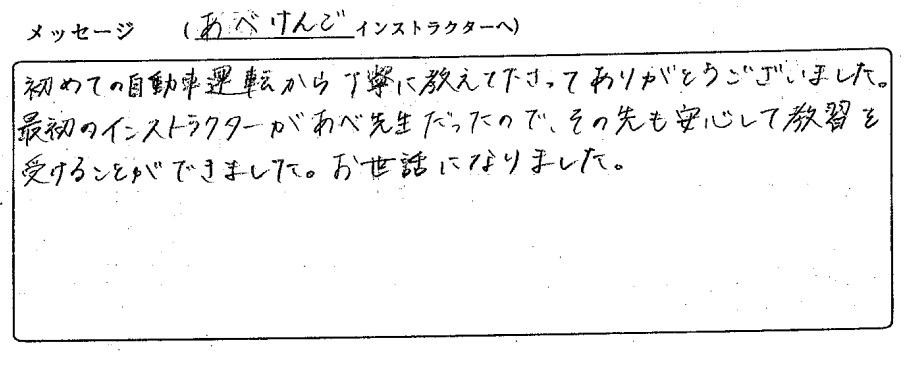 メッセージ (あべけんご インストラクターへ)
初めての自動車運転から丁寧に教えて下さってありがとうございました。
最初のインストラクターがあべ先生だったので、その先も安心して教習を
受けることができました。お世話になりました。